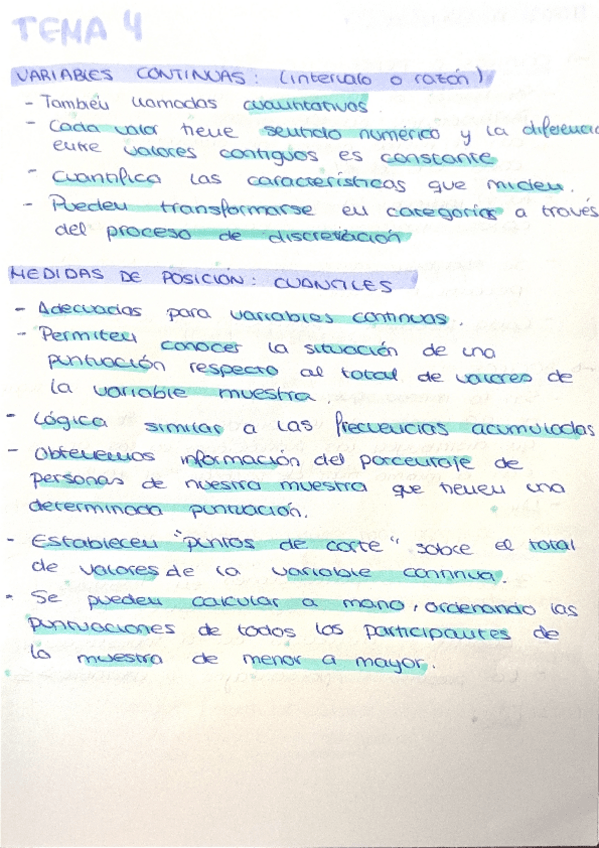 TEMA 4
VARIABLES CONTINUAS: (intervalo o razón)
- También llamadas cuantitativas.
- Cada valor tiene sentido numérico y la diferencia
entre valores contiguos es constante
- Cuantifica las características que miden.
- Pueden transformarse en categorías a través
del proceso de discretización
MEDIDAS DE POSICIÓN: CUANTILES
- Adecuadas para variables continuas.
- Permiten conocer la situación de una
puntuación respecto al total de valores de
la variable muestra.
- Lógica similar a las frecuencias acumuladas
- Obtenemos información del porcentaje de
personas de nuestra muestra que tienen una
determinada puntuación.
- Establecen "puntos de corte" sobre el total
de valores de la variable continua.
- Se pueden calcular a mano, ordenando las
puntuaciones de todos los participantes de
la muestra de menor a mayor.